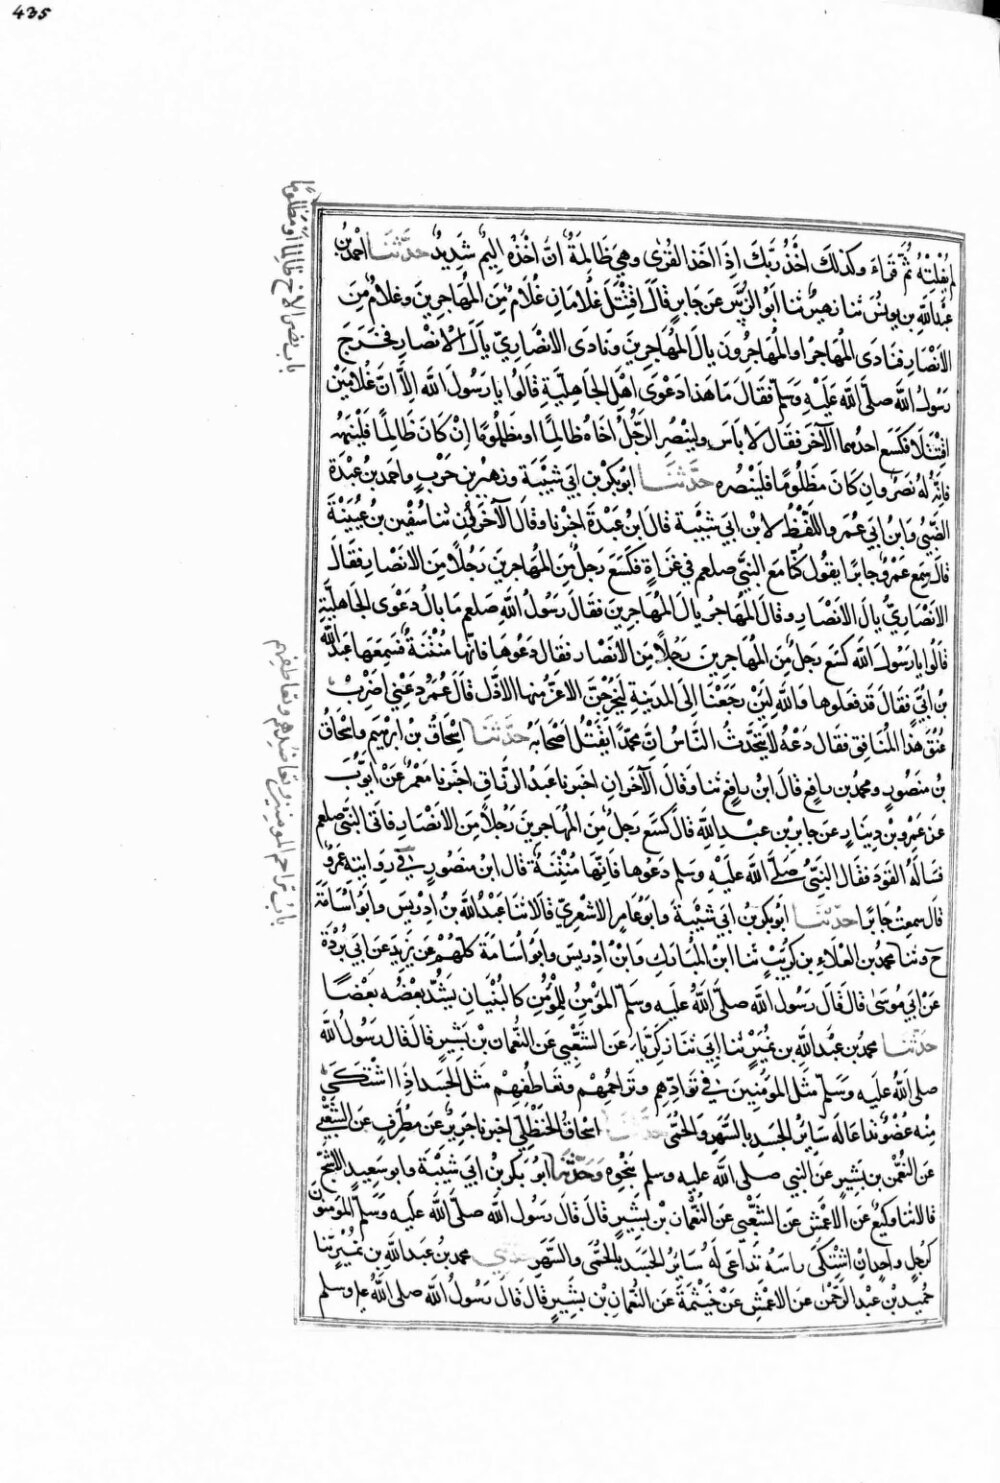 435
باب نصر الاخ ظالما او مظلوما
لم يُفْلِتْهُ ثُمَّ قَرَاءَ وكذلك اَخْذُ رَبِّكَ اِذَا اَخَذَ القُرٰى وهِيَ ظَالِمَةٌ اِنَّ اَخْذَهُ اَلِيْمٌ شَدِيدٌ حدّثنا احمد بن
عبد اللّٰه بن يونس ثنا زهير نا ابو الزبير عن جابرٍ قال اقتتل غلامان غلامٌ من المهاجرين وغلامٌ من
الانصار فنادى المهاجر او المهاجرون يال المهاجرين ونادى الانصاريّ يال الانصار فخرج
رسول اللّٰه صلّى اللّٰه عليه وسلّم فقال ما هذا دعوى اهل الجاهليّة قالوا يا رسول اللّٰه الّا انّ غلامين
اقتتلا فكسع احدهما الآخر فقال لا باس ولينصر الرجل اخاه ظالمًا او مظلومًا ان كان ظالمًا فلينهه
فانّه له نصرٌ وان كان مظلومًا فلينصره حدّثنا ابو بكر بن ابي شيبة وزهير بن حربٍ واحمد بن عبدة
الضّبّيّ وابن ابي عمر واللفظ لابن ابي شيبة قال ابن عبدة اخبرنا وقال الآخرون ثنا سفين بن عيينة
قال سمع عمرٌو جابرًا يقول كنّا مع النبيّ صلعم في غزاةٍ فكسع رجلٌ من المهاجرين رجلًا من الانصار فقال
الانصاريّ يال الانصار وقال المهاجر يال المهاجرين فقال رسول اللّٰه صلعم ما بال دعوى الجاهليّة
قالوا يا رسول اللّٰه كسع رجلٌ من المهاجرين رجلًا من الانصار فقال دعوها فانّها منتنةٌ فسمعها عبد اللّٰه
بن ابيٍّ فقال قد فعلوها واللّٰه لئن رجعنا الى المدينة ليخرجنّ الاعزّ منها الاذلّ قال عمر دعني اضرب
عنق هذا المنافق فقال دعه لا يتحدّث النّاس انّ محمّدًا يقتل اصحابه حدّثنا اسحاق بن ابرهيم واسحاق
بن منصور ومحمد بن رافع قال ابن رافع ثنا وقال الآخران اخبرنا عبد الرزاق اخبرنا معمر عن ايّوب
عن عمرو بن دينارٍ عن جابر بن عبد اللّٰه قال كسع رجلٌ من المهاجرين رجلًا من الانصار فاتى النبيّ صلعم
فساله القود فقال النبيّ صلّى اللّٰه عليه وسلم دعوها فانّها منتنةٌ قال ابن منصور في روايته عمرو
قال سمعت جابرًا حدّثنا ابو بكر بن ابي شيبة وابو عامر الاشعريّ قالا ثنا عبد اللّٰه بن ادريس وابو اسامة
ح وثنا محمد بن العلاء بن كريب ثنا ابن المبارك وابن ادريس وابو اسامة كلّهم عن بريد عن ابي بردة
عن ابي موسى قال قال رسول اللّٰه صلّى اللّٰه عليه وسلّم المؤمن للمؤمن كالبنيان يشدّ بعضه بعضًا
باب تراحم المومنين وتعاضدهم وتعاطفهم
حدّثنا محمد بن عبد اللّٰه بن نمير ثنا ابي ثنا زكريّا عن الشّعبي عن النّعمان بن بشيرٍ قال قال رسول اللّٰه
صلى اللّٰه عليه وسلّم مثل المؤمنين في توادّهم وتراحمهم وتعاطفهم مثل الجسد اذا اشتكى
منه عضوٌ تداعا له سائر الجسد بالسّهر والحمّى حدّثنا اسحاق الحنظليّ اخبرنا جرير عن مطرّف عن الشّعبيّ
عن النّعمن بن بشيرٍ عن النبي صلى اللّٰه عليه وسلم بنحوه وحدّثنا ابو بكر بن ابي شيبة وابو سعيد الاشجّ
قالا ثنا وكيع عن الاعمش عن الشّعبي عن النّعمان بن بشيرٍ قال قال رسول اللّٰه صلّى اللّٰه عليه وسلّم المومنون
كرجلٍ واحدٍ ان اشتكى راسه تداعى له سائر الجسد بالحمّى والسّهر حدّثني محمد بن عبد اللّٰه بن نمير ثنا
حميد بن عبد الرحمٰن عن الاعمش عن خيثمة عن النّعمان بن بشيرٍ قال قال رسول اللّٰه صلى اللّٰه عليه وسلم